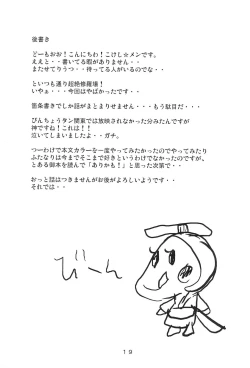 後書き
どーもおお！こんにちわ！こけし☆メンです。
ええと・・書いてる暇がありません・・
またせてりうつ・・待ってる人がいるのでな・・
といつも通り超絶修羅場！
いやぁ・・・今回はやばかったです・・
箇条書きでしか話がまとまりせません・・・もう駄目だ・・・
ぴんちょうタン関東では放映されなかった分みたんですが
神ですね！これは！！
泣いてしまいましたよ・・ガチ。
つーわけで本文カラーを一度やってみたかったのでやってみたり
ふたなりは今までそこまで好きというわけでなかったのですが、
とある御本を読んで「ありかも！」と思った次第で・・
おっと話はつきませんがお後がよろしいようです・・
それでは・・
びーん
19